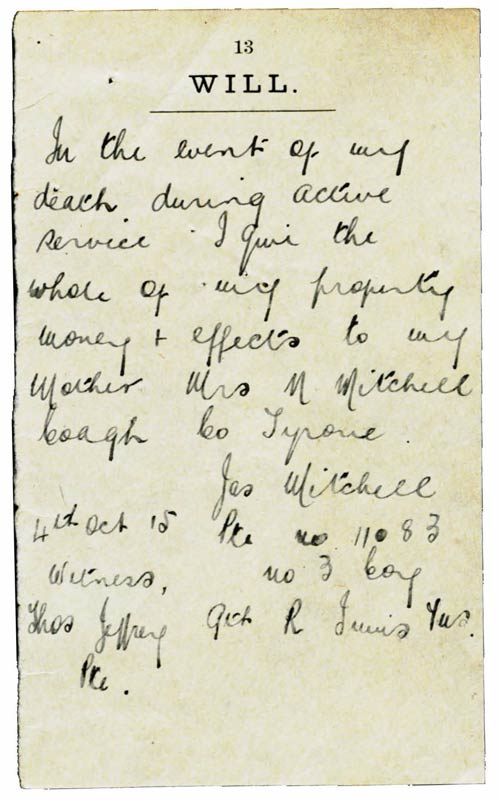 13
WILL.
In the event of my
death during active
service I give the
whole of my property
money + effects to my
Mother Mrs M Mitchell
Coagh Co Tyrone
Jas Mitchell
4th Oct 15 Pte no 11083
Witness, no 3 Coy
Thos Jeffrey 9th R Innis Fus.
Pte.